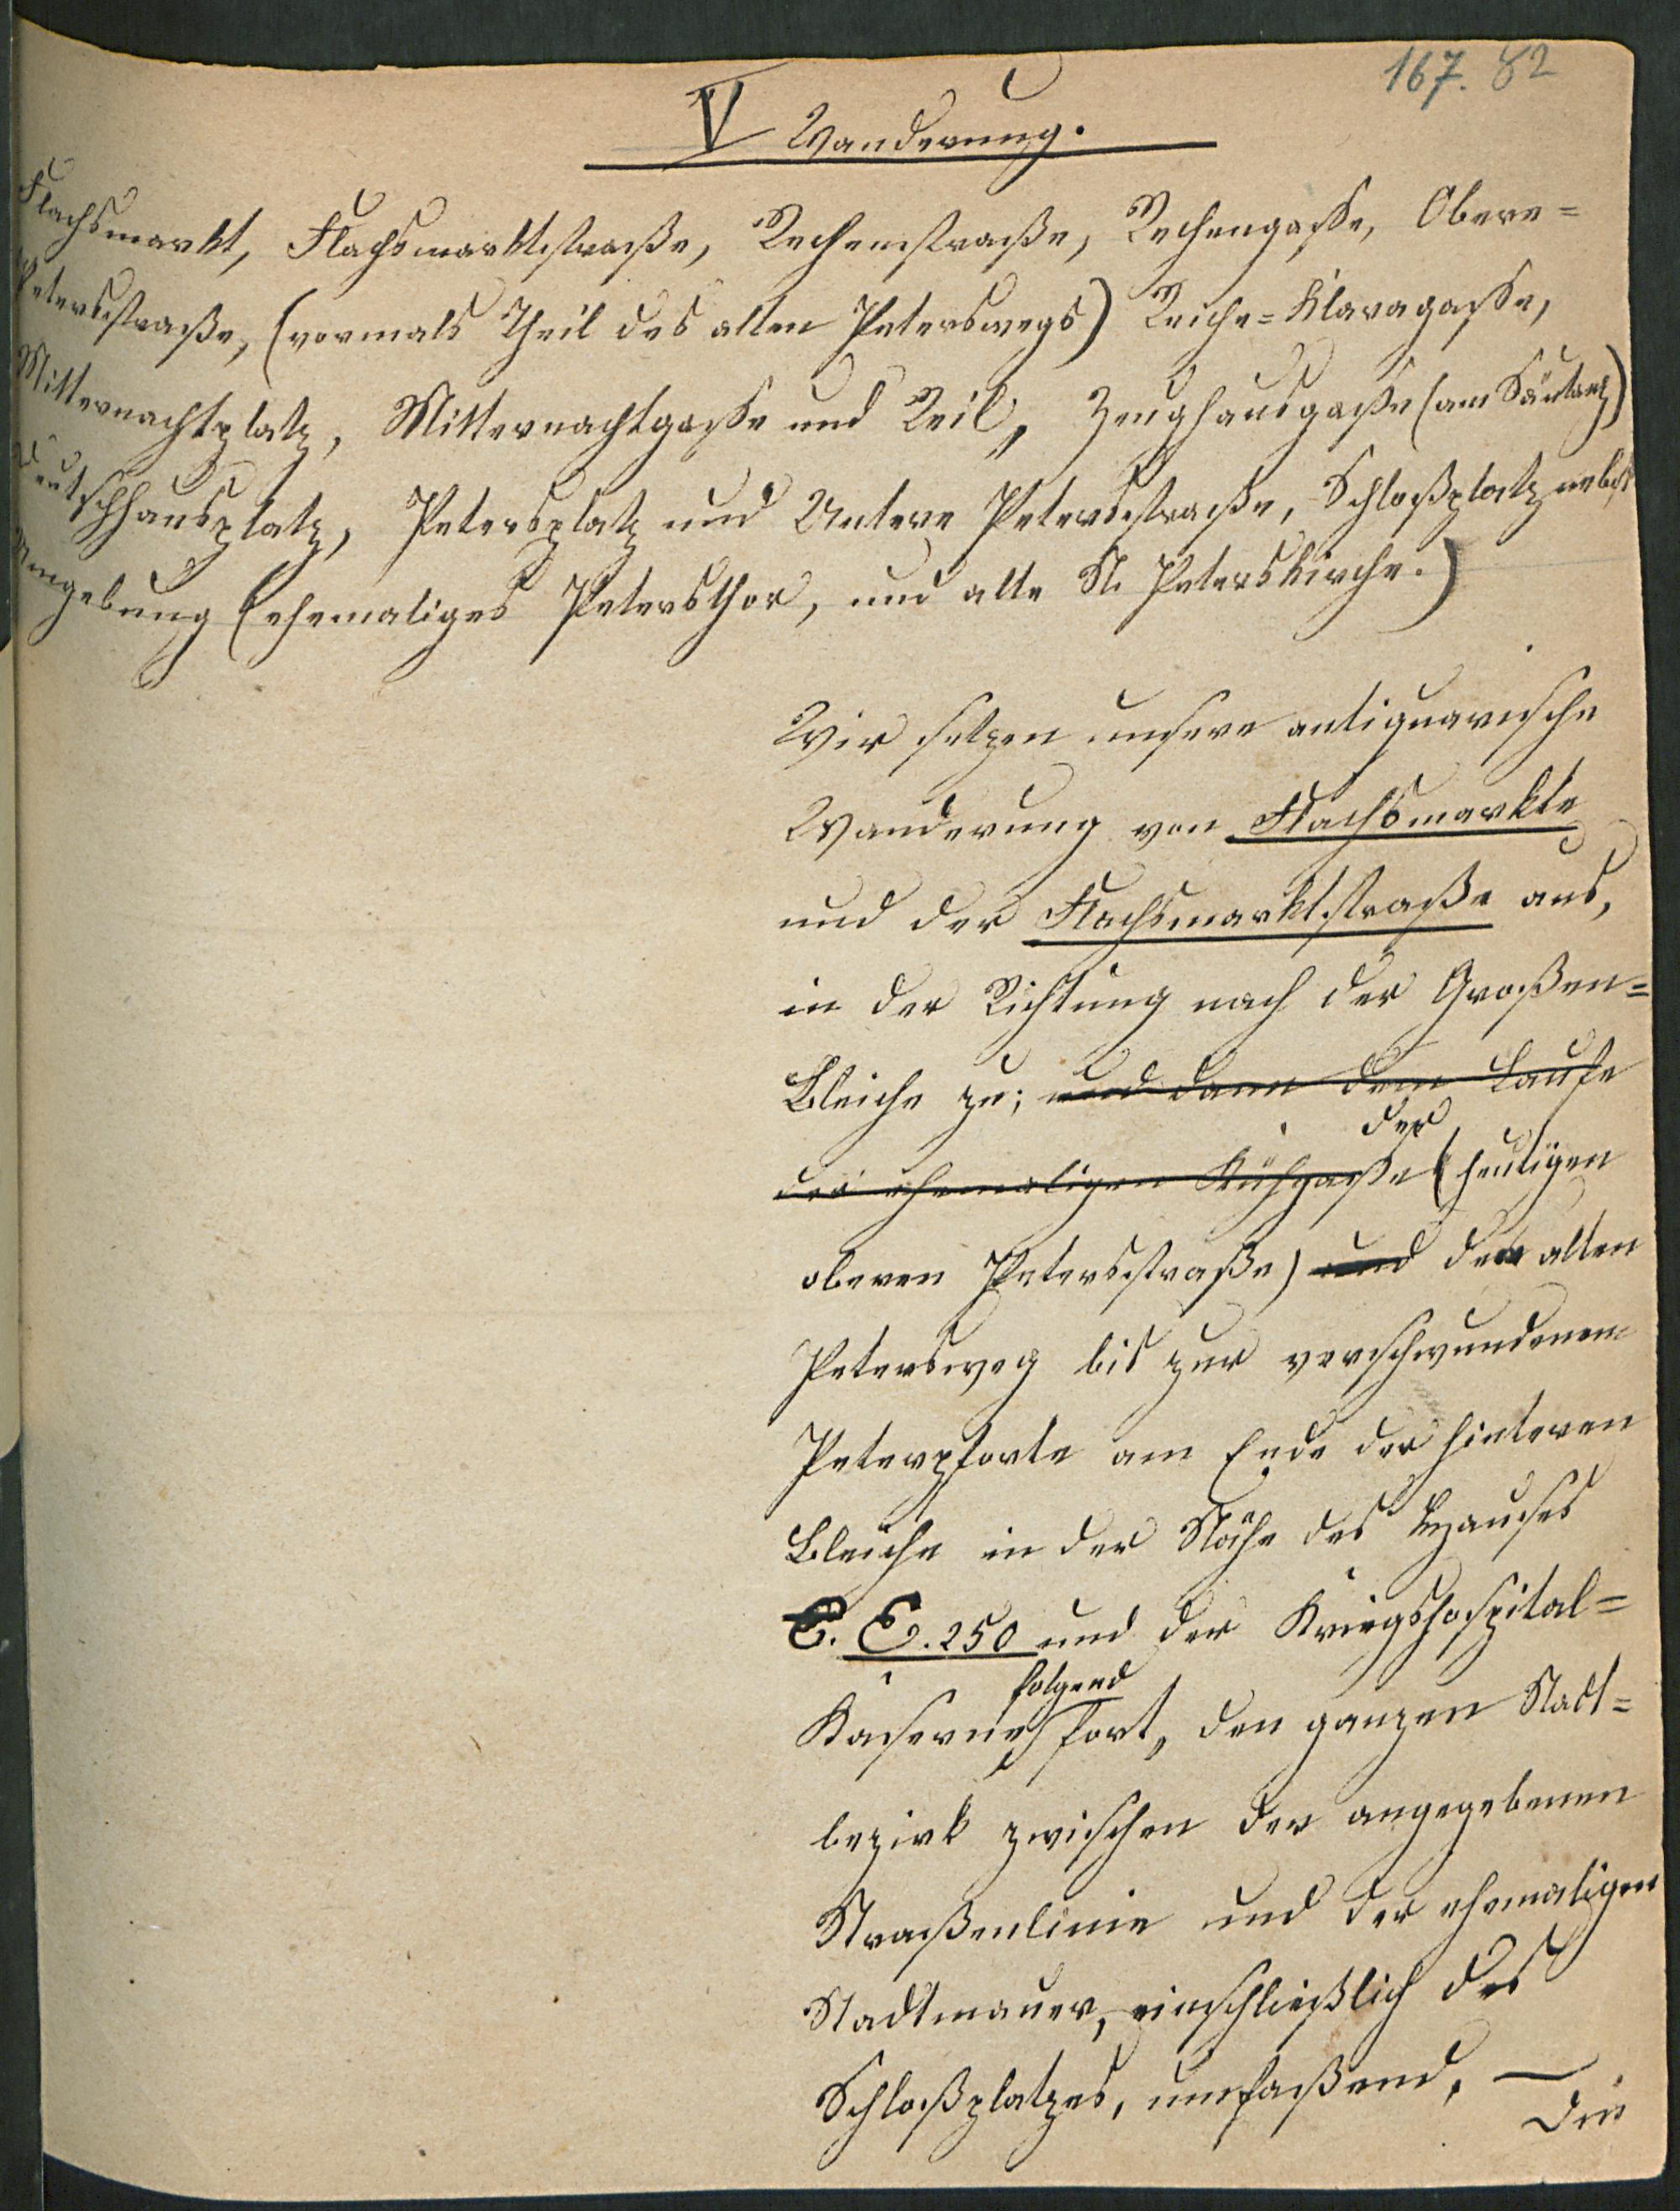 167. 82
V Wanderung.
Flachsmarkt, Flachsmarktstraße, Rechenstraße, Rechengasse, Obere=
Petersstraße, (vormals Theil des alten Peterswegs) Reiche=Klaragasse,
Mitternachtplatz, Mitternachtgasse und Zeughausgasse (am
Deutschhausplatz, Petersplatz und Untere Petersstraße, Schloßplatz nebst
Umgebung (ehemaliges Petersthor, und alte St. Peterskirche.)
Wir setzen unsere antiquarische
Wanderung von Flachsmarkte
und der Flachsmarktstraße aus,
in der Richtung nach der Großen=
Bleiche zu; und dann dem Laufe
der
der ehemaligen Kühgasse (heutigen
oberen Petersstraße) und den alten
Petersweg bis zur verschwundenen
Peterpforte am Ende der hinteren
Bleiche in der Nähe des Hauses
E. E. 250 und der Kriegshospital=
folgend
Kaserne fort, den ganzen Stadt=
bezirk zwischen der angegebenen
Straßenlinie und der ehemaligen
Stadtmauer, einschließlich des
Schloßplatzes, umfaßend. —
Die